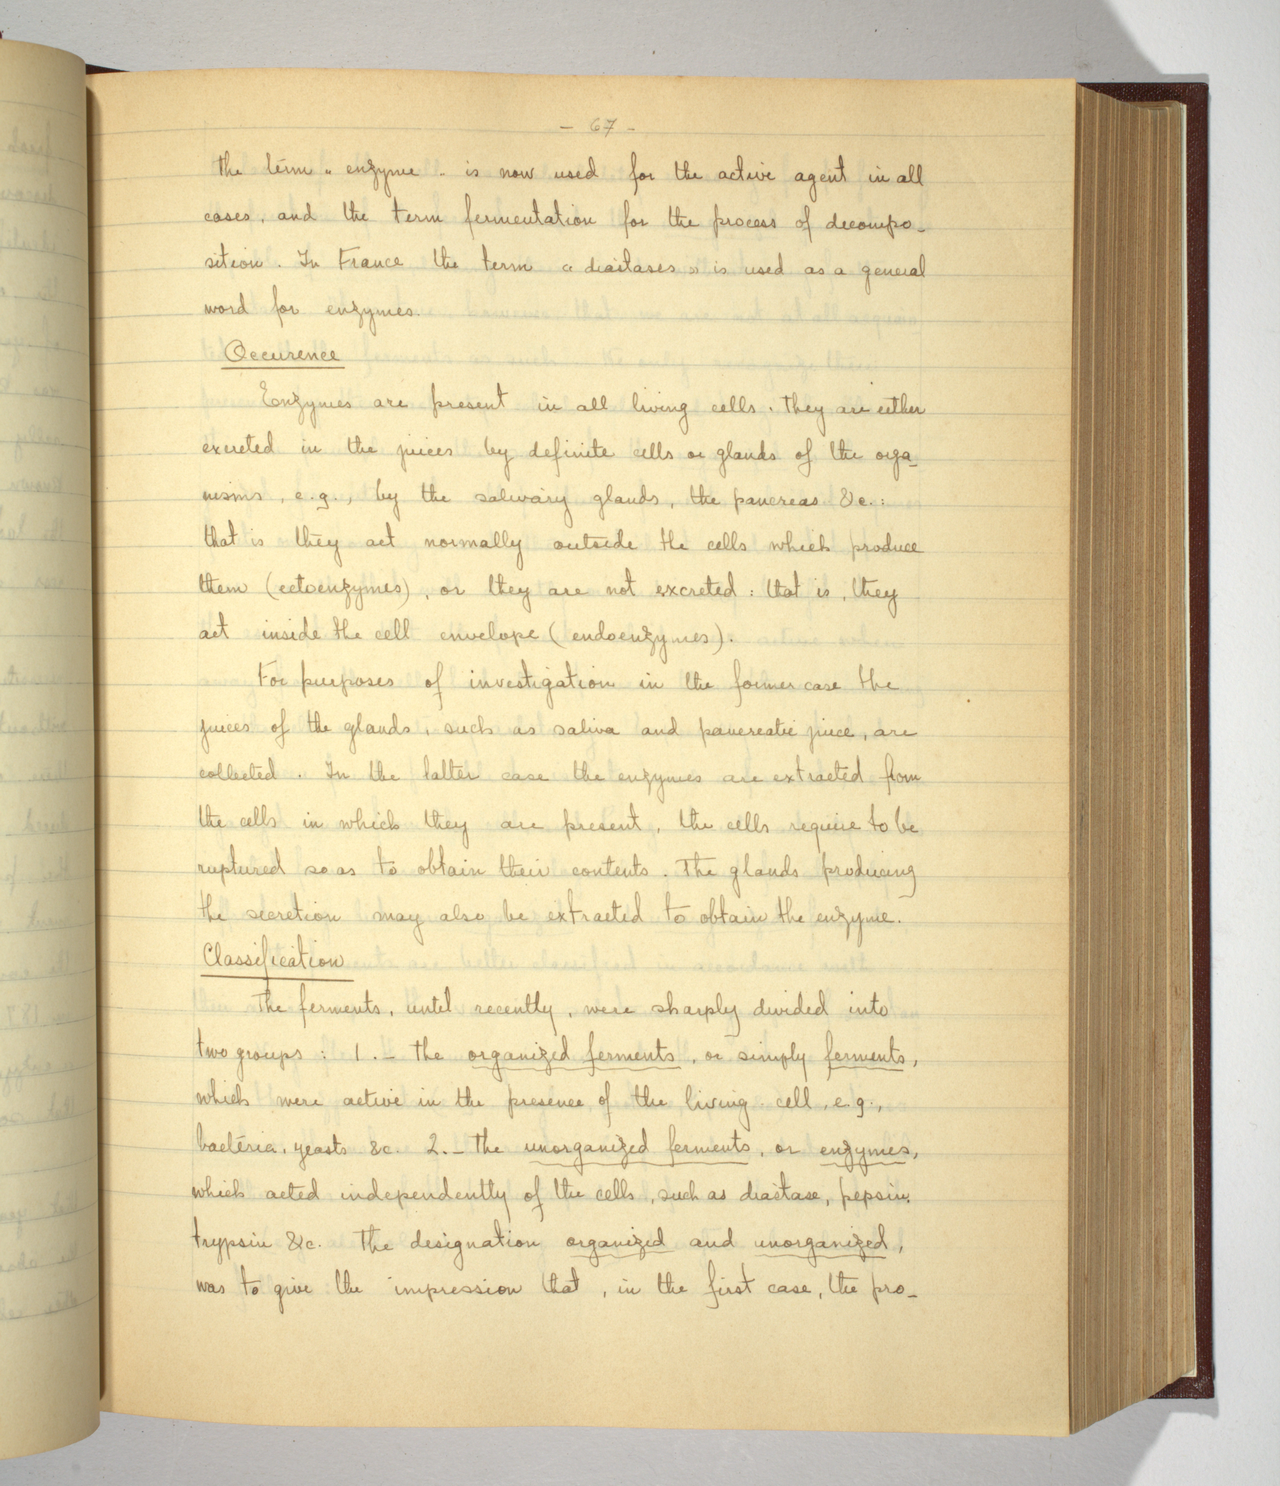 - 67 -
the term " enzyme " is now used for the active agent in all
cases, and the term fermentation for the process of decompo-
sition. In France the term « diastases » is used as a general
word for enzymes.
Occurence
Enzymes are present in all living cells. they are either
excreted in the juices by definite cells or glands of the orga-
nisms, e.g., by the salivary glands, the pancreas &c.:
that is they act normally outside the cells which produce
them (ectoenzymes), or they are not excreted: that is, they
act inside the cell envelope (endoenzymes).
For purposes of investigation in the former case the
juices of the glands, such as saliva and pancreatic juice, are
collected. In the latter case the enzymes are extracted from
the cells in which they are present, the cells require to be
ruptured so as to obtain their contents. The glands producing
the secretion may also be extracted to obtain the enzyme.
Classification
The ferments, until recently, were sharply divided into
two groups : 1.- the organized ferments, or simply ferments,
which were active in the presence of the living cell, e.g.,
bacteria, yeasts &c. 2.- the unorganized ferments, or enzymes,
which acted independently of the cells, such as diastase, pepsin,
trypsin &c. The designation organized and unorganized,
was to give the impression that, in the first case, the pro-